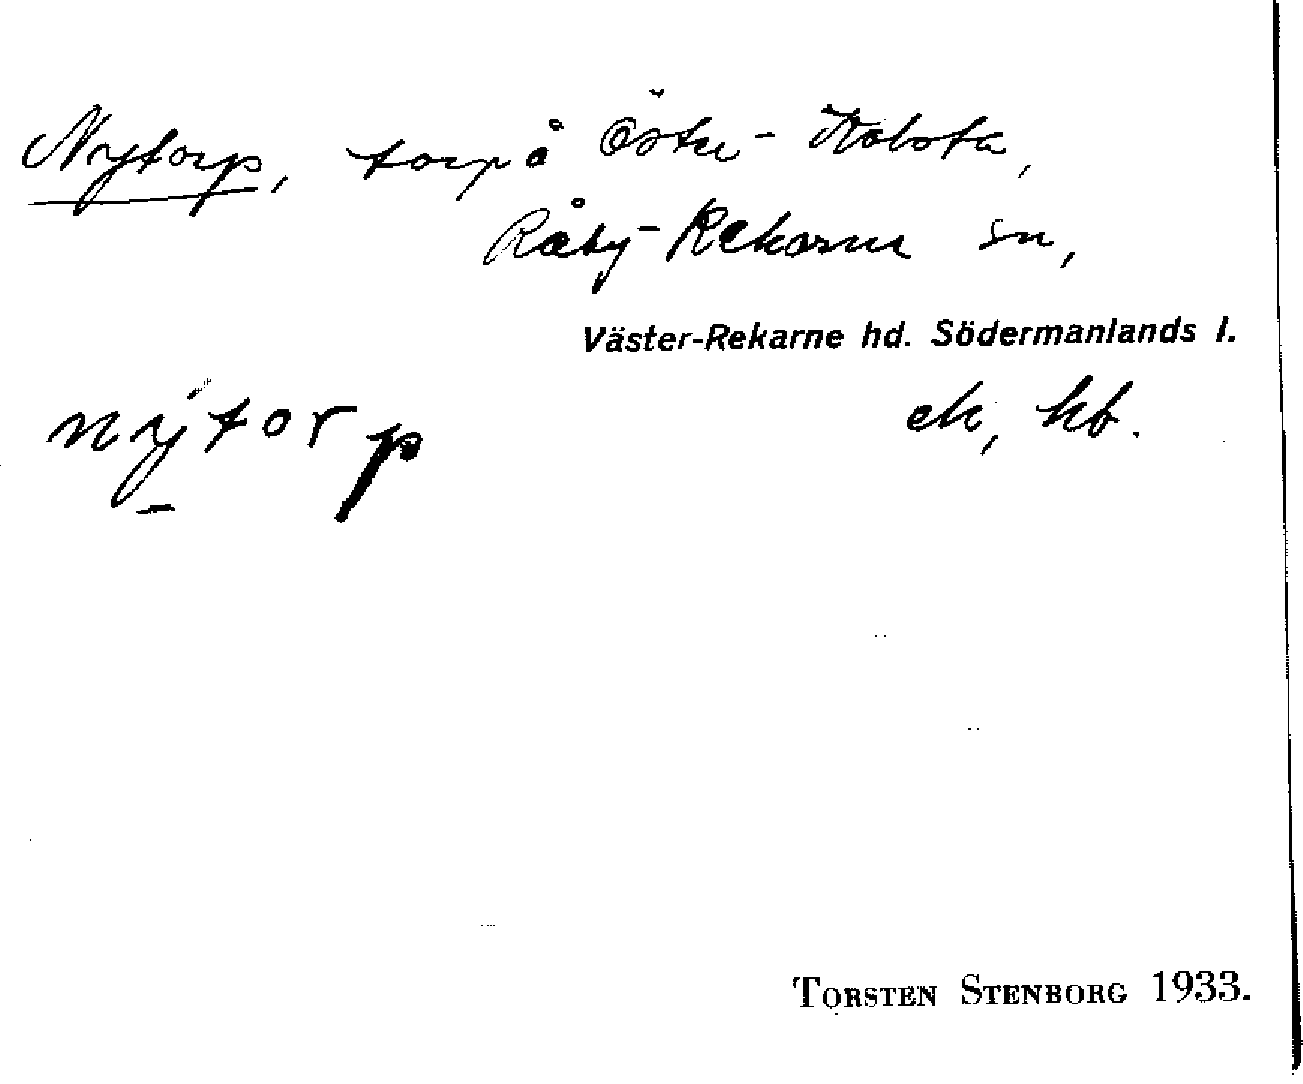 Nytorp, torp å Öster-Kolsta,
Råby-Rekarne sn,
Väster-Rekarne hd. Södermanlands l.
nýtorp
ek, kb.
TORSTEN STENBORG 1933.